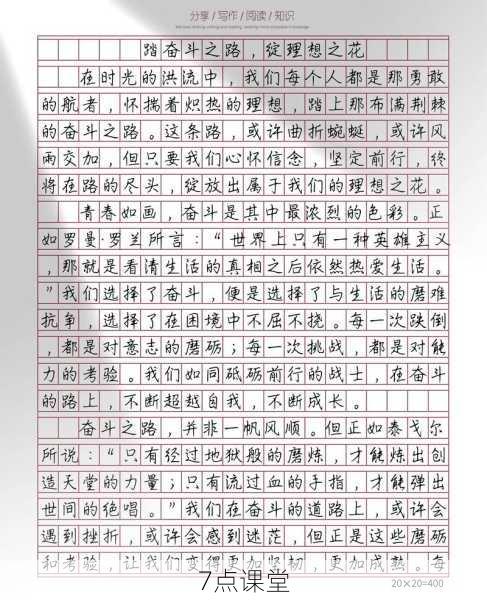 分享 / 写作 / 阅读 / 知识
踏奋斗之路，绽理想之花
在时光的洪流中，我们每个人都是那勇敢
的航者，怀揣着炽热的理想，踏上那布满荆棘
的奋斗之路。这条路，或许曲折蜿蜒，或许风
雨交加，但只要我们心怀信念，坚定前行，终
将在路的尽头，绽放出属于我们的理想之花。
青春如画，奋斗是其中最浓烈的色彩。正
如罗曼·罗兰所言：“世界上只有一种英雄主义
，那就是看清生活的真相之后依然热爱生活。
”我们选择了奋斗，便是选择了与生活的磨难
抗争，选择了在困境中不屈不挠。每一次跌倒
，都是对意志的磨砺；每一次挑战，都是对能
力的考验。我们如同砥砺前行的战士，在奋斗
的路上，不断超越自我，不断成长。
奋斗之路，并非一帆风顺。但正如泰戈尔
所说：“只有经过地狱般的磨炼，才能炼出创
造天堂的力量；只有流过血的手指，才能弹出
世间的绝唱。”我们在奋斗的道路上，或许会
遇到挫折，或许会感到迷茫，但正是这些磨砺
和考验，让我们变得更加坚韧，更加成熟。每
7点课堂
20×20=400